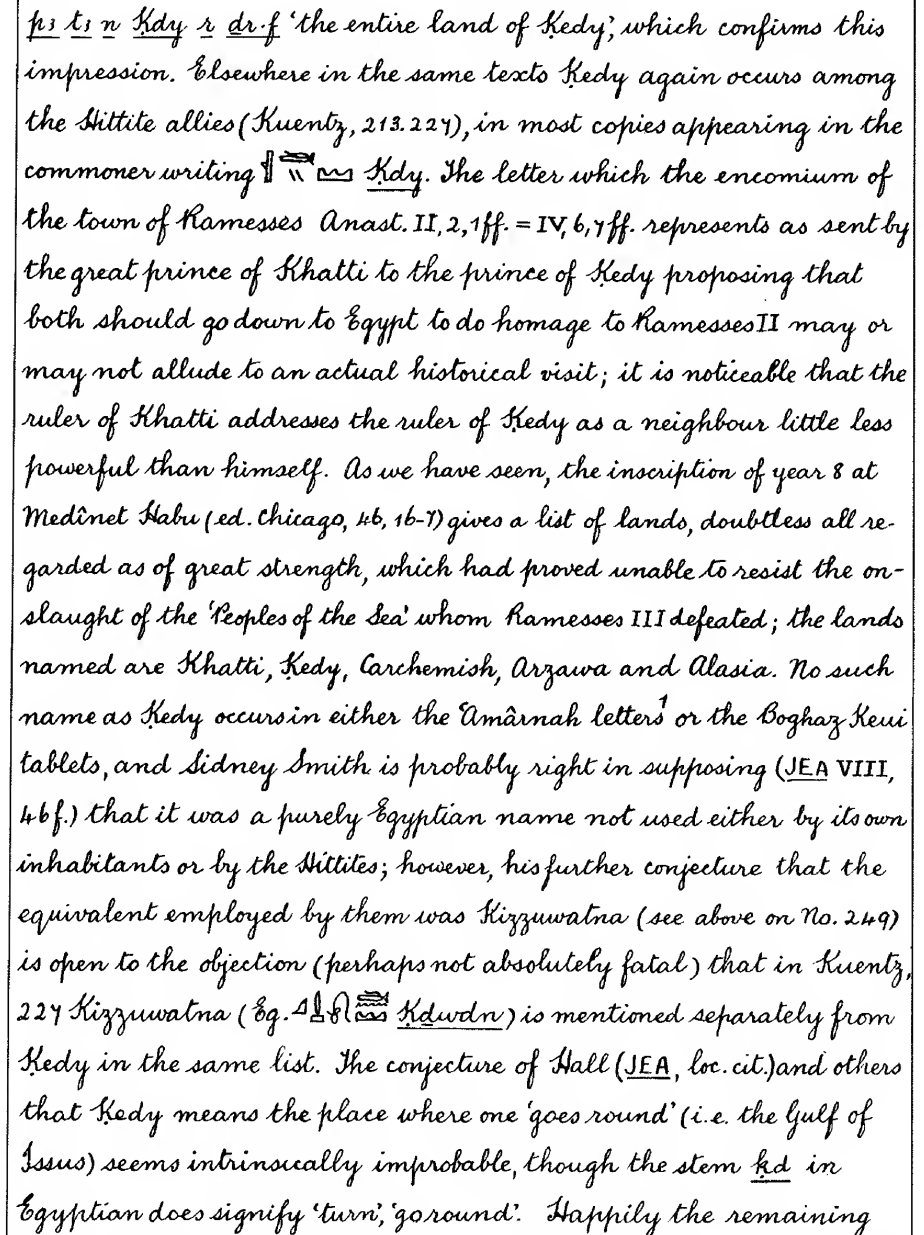 pꜣ tꜣ n Ḳdy r dr·f ‘the entire land of Ḳedy’, which confirms this
impression. Elsewhere in the same texts Ḳedy again occurs among
the Hittite allies (Kuentz, 213. 227), in most copies appearing in the
commoner writing Ḳdy. The letter which the encomium of
the town of Ramesses Anast. II, 2, 1ff. = IV, 6, 7ff. represents as sent by
the great prince of Khatti to the prince of Ḳedy proposing that
both should go down to Egypt to do homage to Ramesses II may or
may not allude to an actual historical visit; it is noticeable that the
ruler of Khatti addresses the ruler of Ḳedy as a neighbour little less
powerful than himself. As we have seen, the inscription of year 8 at
Medînet Habu (ed. Chicago, 46, 16-7) gives a list of lands, doubtless all re-
garded as of great strength, which had proved unable to resist the on-
slaught of the ‘Peoples of the Sea’ whom Ramesses III defeated; the lands
named are Khatti, Ḳedy, Carchemish, Arzawa and Alasia. No such
name as Ḳedy occurs in either the ‘Amârnah letters¹ or the Boghaz Keui
tablets, and Sidney Smith is probably right in supposing (JEA VIII,
46f.) that it was a purely Egyptian name not used either by its own
inhabitants or by the Hittites; however, his further conjecture that the
equivalent employed by them was Kizzuwatna (see above on No. 249)
is open to the objection (perhaps not absolutely fatal) that in Kuentz,
227 Kizzuwatna (Eg. Ḳdwdn) is mentioned separately from
Ḳedy in the same list. The conjecture of Hall (JEA, loc. cit.) and others
that Ḳedy means the place where one ‘goes round’ (i.e. the Gulf of
Issus) seems intrinsically improbable, though the stem ḳd in
Egyptian does signify ‘turn’, ‘go round’. Happily the remaining